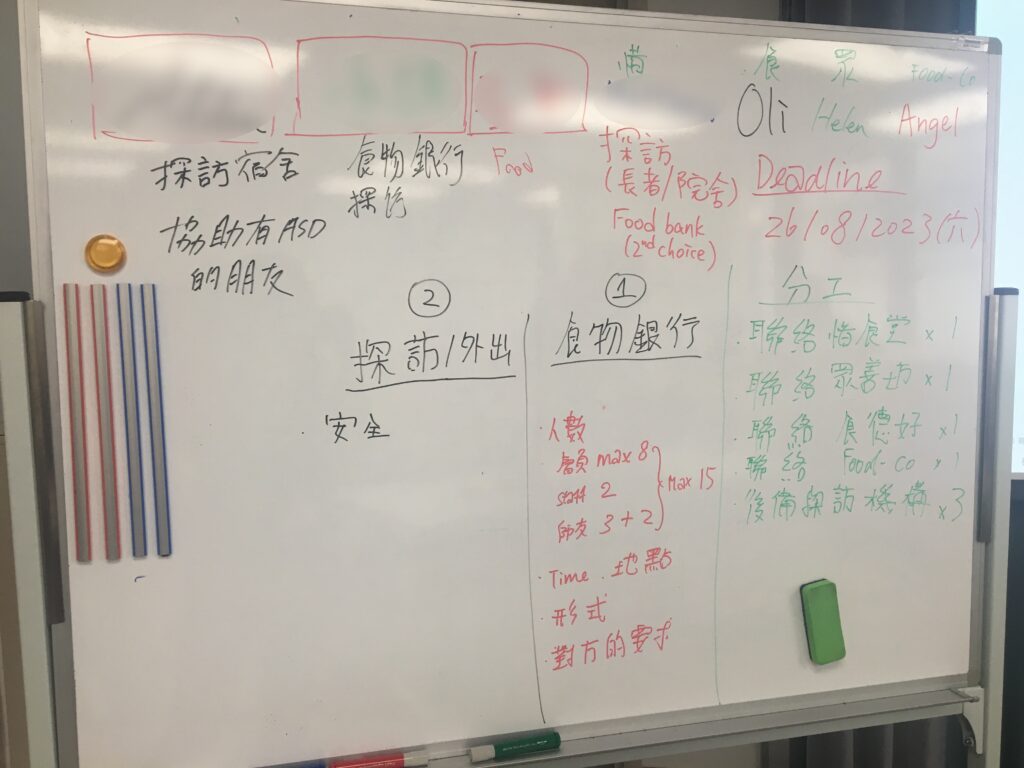 惜 食 眾 Food-Co
Oli Helen Angel
探訪宿舍
協助有ASD
的朋友
食物銀行
探訪
Food
探訪
(長者/院舍)
Food bank
(2nd choice)
Deadline
26/08/2023(六)
②
探訪/外出
· 安全
①
食物銀行
· 人數
max 8
staff 2
師友 3+2
Max 15
· Time · 地點
· 形式
· 對方的要求
分工
· 聯絡惜食堂 x 1
· 聯絡眾善坊 x 1
· 聯絡 食德好 x 1
· 聯絡 Food-Co x 1
· 後備探訪機構 x 3